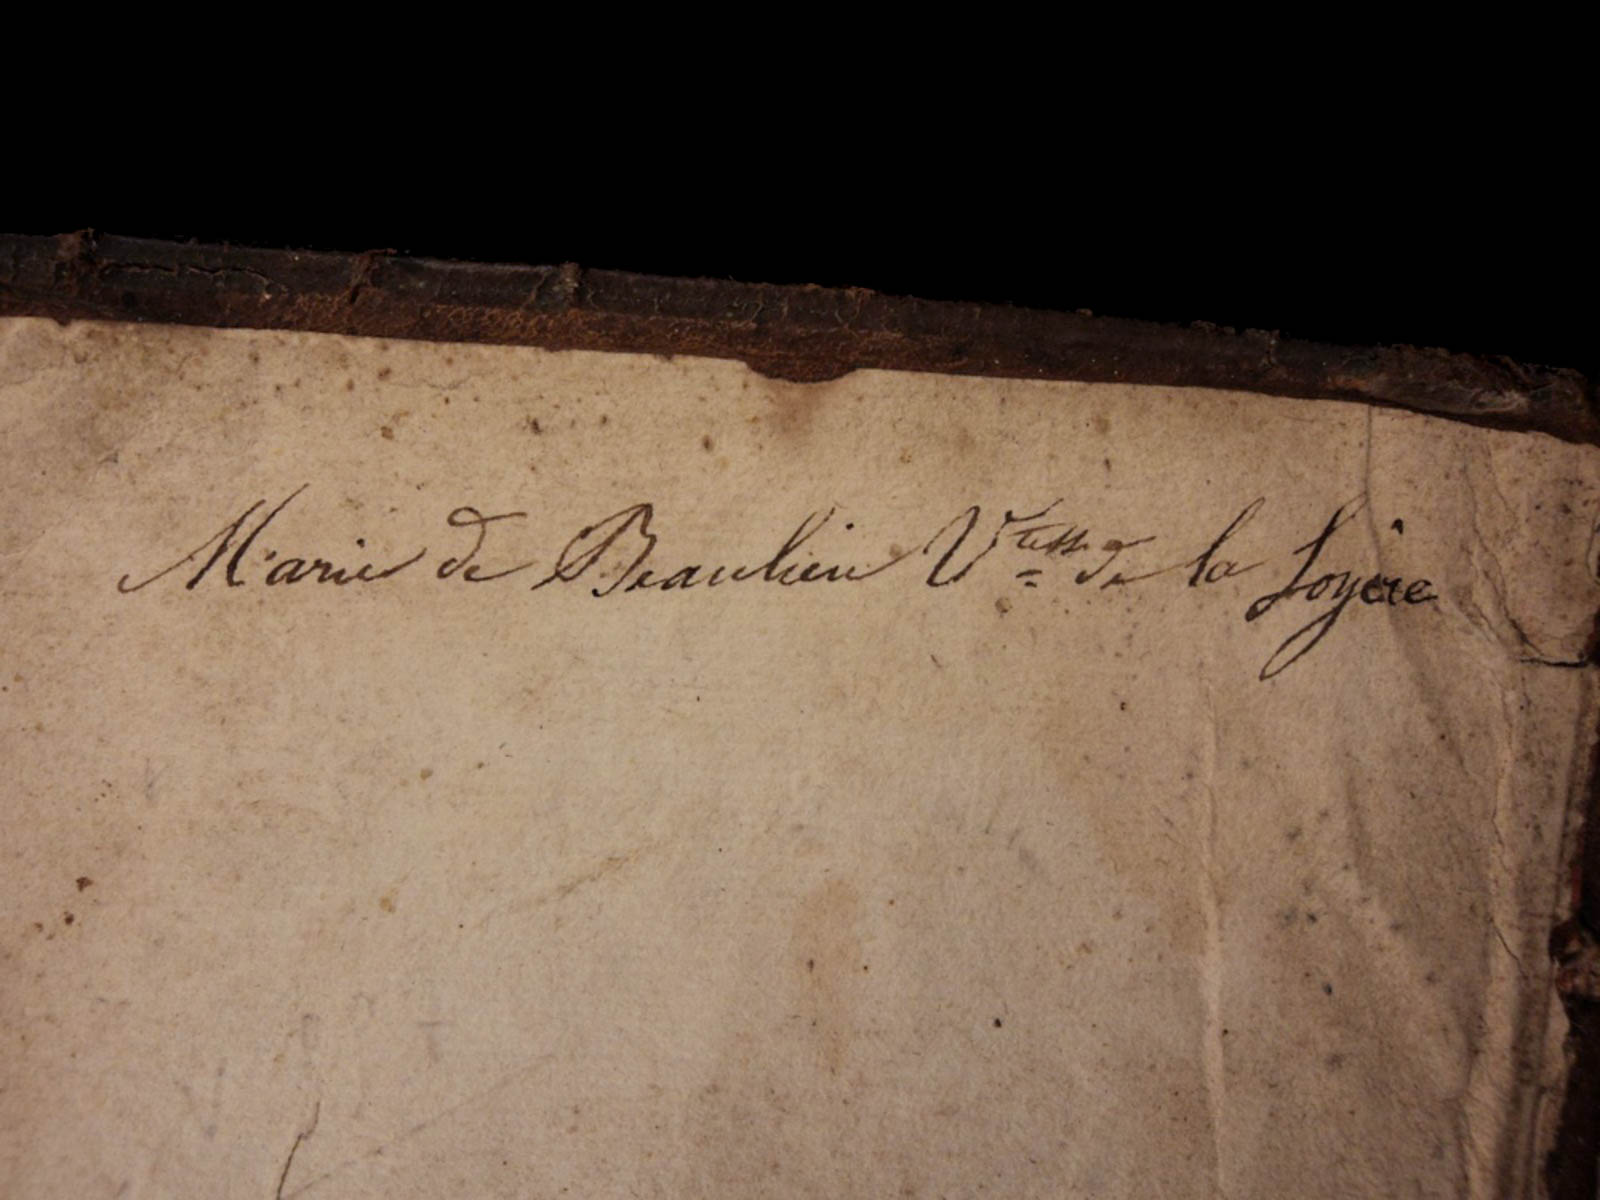 Marie de Beaulieu Vtesse de la Loyère